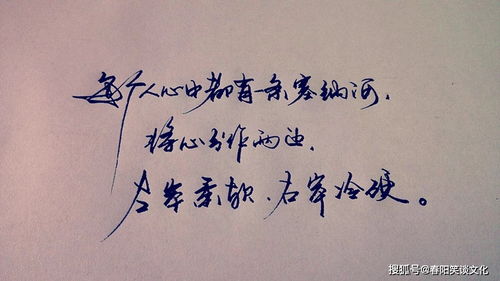 每个人心中都有一条塞纳河，
将心分作两边，
左岸柔软，右岸冷硬。
搜狐号@春阳笑谈文化